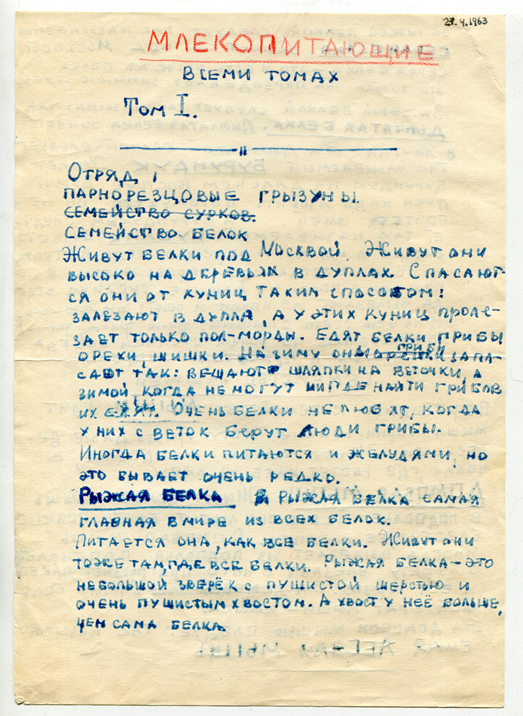 27.4.1963
МЛЕКОПИТАЮЩИЕ
ВСЕМИ ТОМАХ
ТОМ I.
ОТРЯД 1
ПАРНОРЕЗЦОВЫЕ ГРЫЗУНЫ.
СЕМЕЙСТВО СУРКОВ.
СЕМЕЙСТВО БЕЛОК
ЖИВУТ БЕЛКИ ПОД МОСКВОЙ. ЖИВУТ ОНИ
ВЫСОКО НА ДЕРЕВЬЯХ В ДУПЛАХ. СПАСАЮТ-
СЯ ОНИ ОТ КУНИЦ ТАКИМ СПОСОБОМ:
ЗАЛЕЗАЮТ В ДУПЛА, А У ЭТИХ КУНИЦ ПРОЛЕ-
ЗАЕТ ТОЛЬКО ПОЛ-МОРДЫ. ЕДЯТ БЕЛКИ ГРИБЫ
ОРЕХИ, ШИШКИ. НА ЗИМУ ОНИ ОРЕШКИ ГРИБЫ ЗАПА-
САЮТ ТАК: ВЕШАЮТ ШЛЯПКИ НА ВЕТОЧКИ, А
ЗИМОЙ КОГДА НЕ МОГУТ НАЙТИ ГРИБОВ
ИХ ЕДЯТ. ОЧЕНЬ БЕЛКИ НЕ ЛЮБЯТ, КОГДА
У НИХ С ВЕТОК БЕРУТ ЛЮДИ ГРИБЫ.
ИНОГДА БЕЛКИ ПИТАЮТСЯ И ЖЕЛУДЯМИ, НО
ЭТО БЫВАЕТ ОЧЕНЬ РЕДКО.
РЫЖАЯ БЕЛКА РЫЖАЯ БЕЛКА САМАЯ
ГЛАВНАЯ В МИРЕ ИЗ ВСЕХ БЕЛОК.
ПИТАЕТСЯ ОНА, КАК ВСЕ БЕЛКИ. ЖИВУТ ОНИ
ТОЖЕ ТАМ, ГДЕ ВСЕ БЕЛКИ. РЫЖАЯ БЕЛКА – ЭТО
НЕБОЛЬШОЙ ЗВЕРЁК С ПУШИСТОЙ ШЕРСТЬЮ И
ОЧЕНЬ ПУШИСТЫМ ХВОСТОМ. А ХВОСТ У НЕЁ БОЛЬШЕ,
ЧЕМ САМА БЕЛКА.